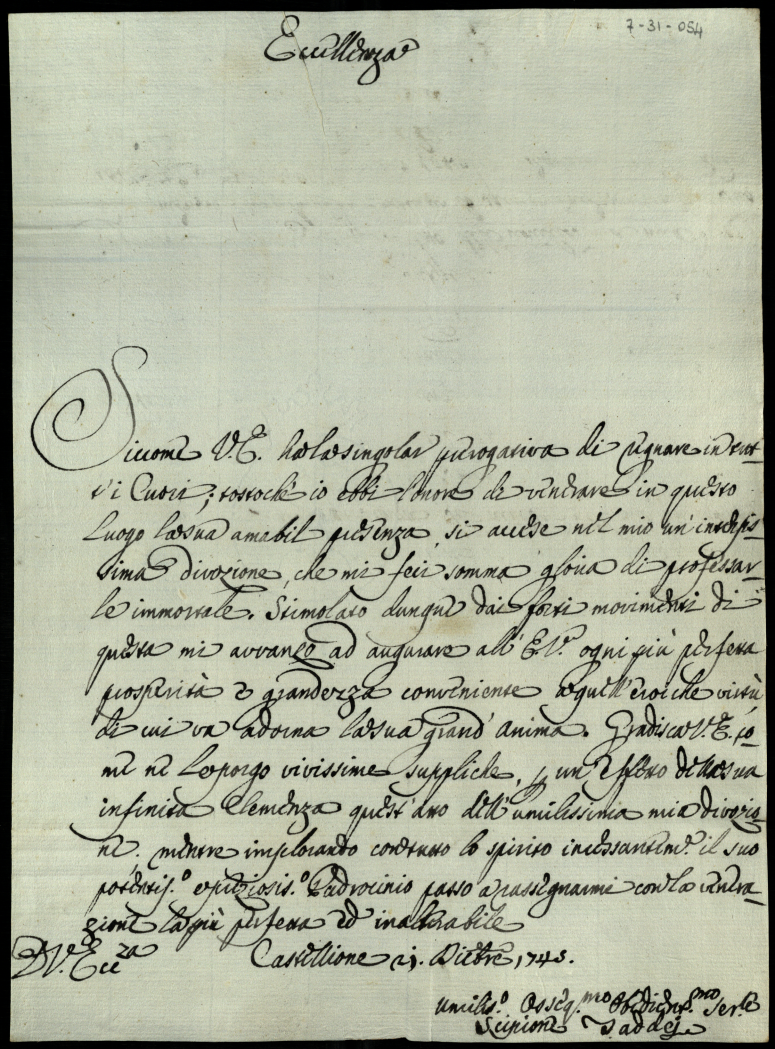 7-31-054
Eccellenza
Siccome V.E. ha la singolar prerogativa di regnare in tut-
t'i Cuori; tostoché io ebbi l'onore di venerare in questo
Luogo la sua amabil presenza, si accese nel mio un'intensis-
sima divozione, che mi feci somma gloria di professar-
le immortale. Stimolato dunque dai forti movimenti di
questa mi avvanzo ad augurare all'E.V. ogni più perfetta
prosperità e grandezza conveniente a quell'eroiche virtù
di cui va adorna la sua grand'anima. Gradisca V.E. co-
me ne le porgo vivissime suppliche, p un effetto della sua
infinita Clemenza quest'atto dell'umilissima mia divozio-
ne. mentre implorando con tutto lo spirito incessantem.e il suo
potentis.o e preziosis.o Padrocinio passo a rassegnarmi con la venera-
zione la più perfetta ed inalterabile
D.V. Ecc.za
Castellione 21. Dicbre 1745.
Umilis.o Osseq.mo Obedient.mo Ser.le
Scipione Taddej